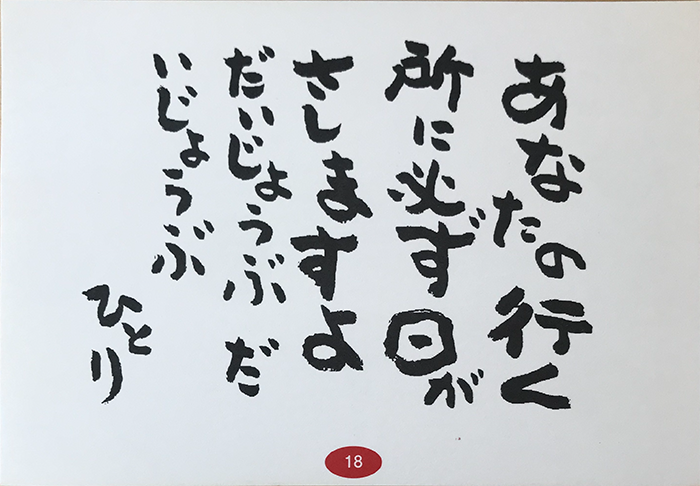 あなたの行く
所に必ず日が
さしますよ
だいじょうぶ だ
いじょうぶ
ひとり
18